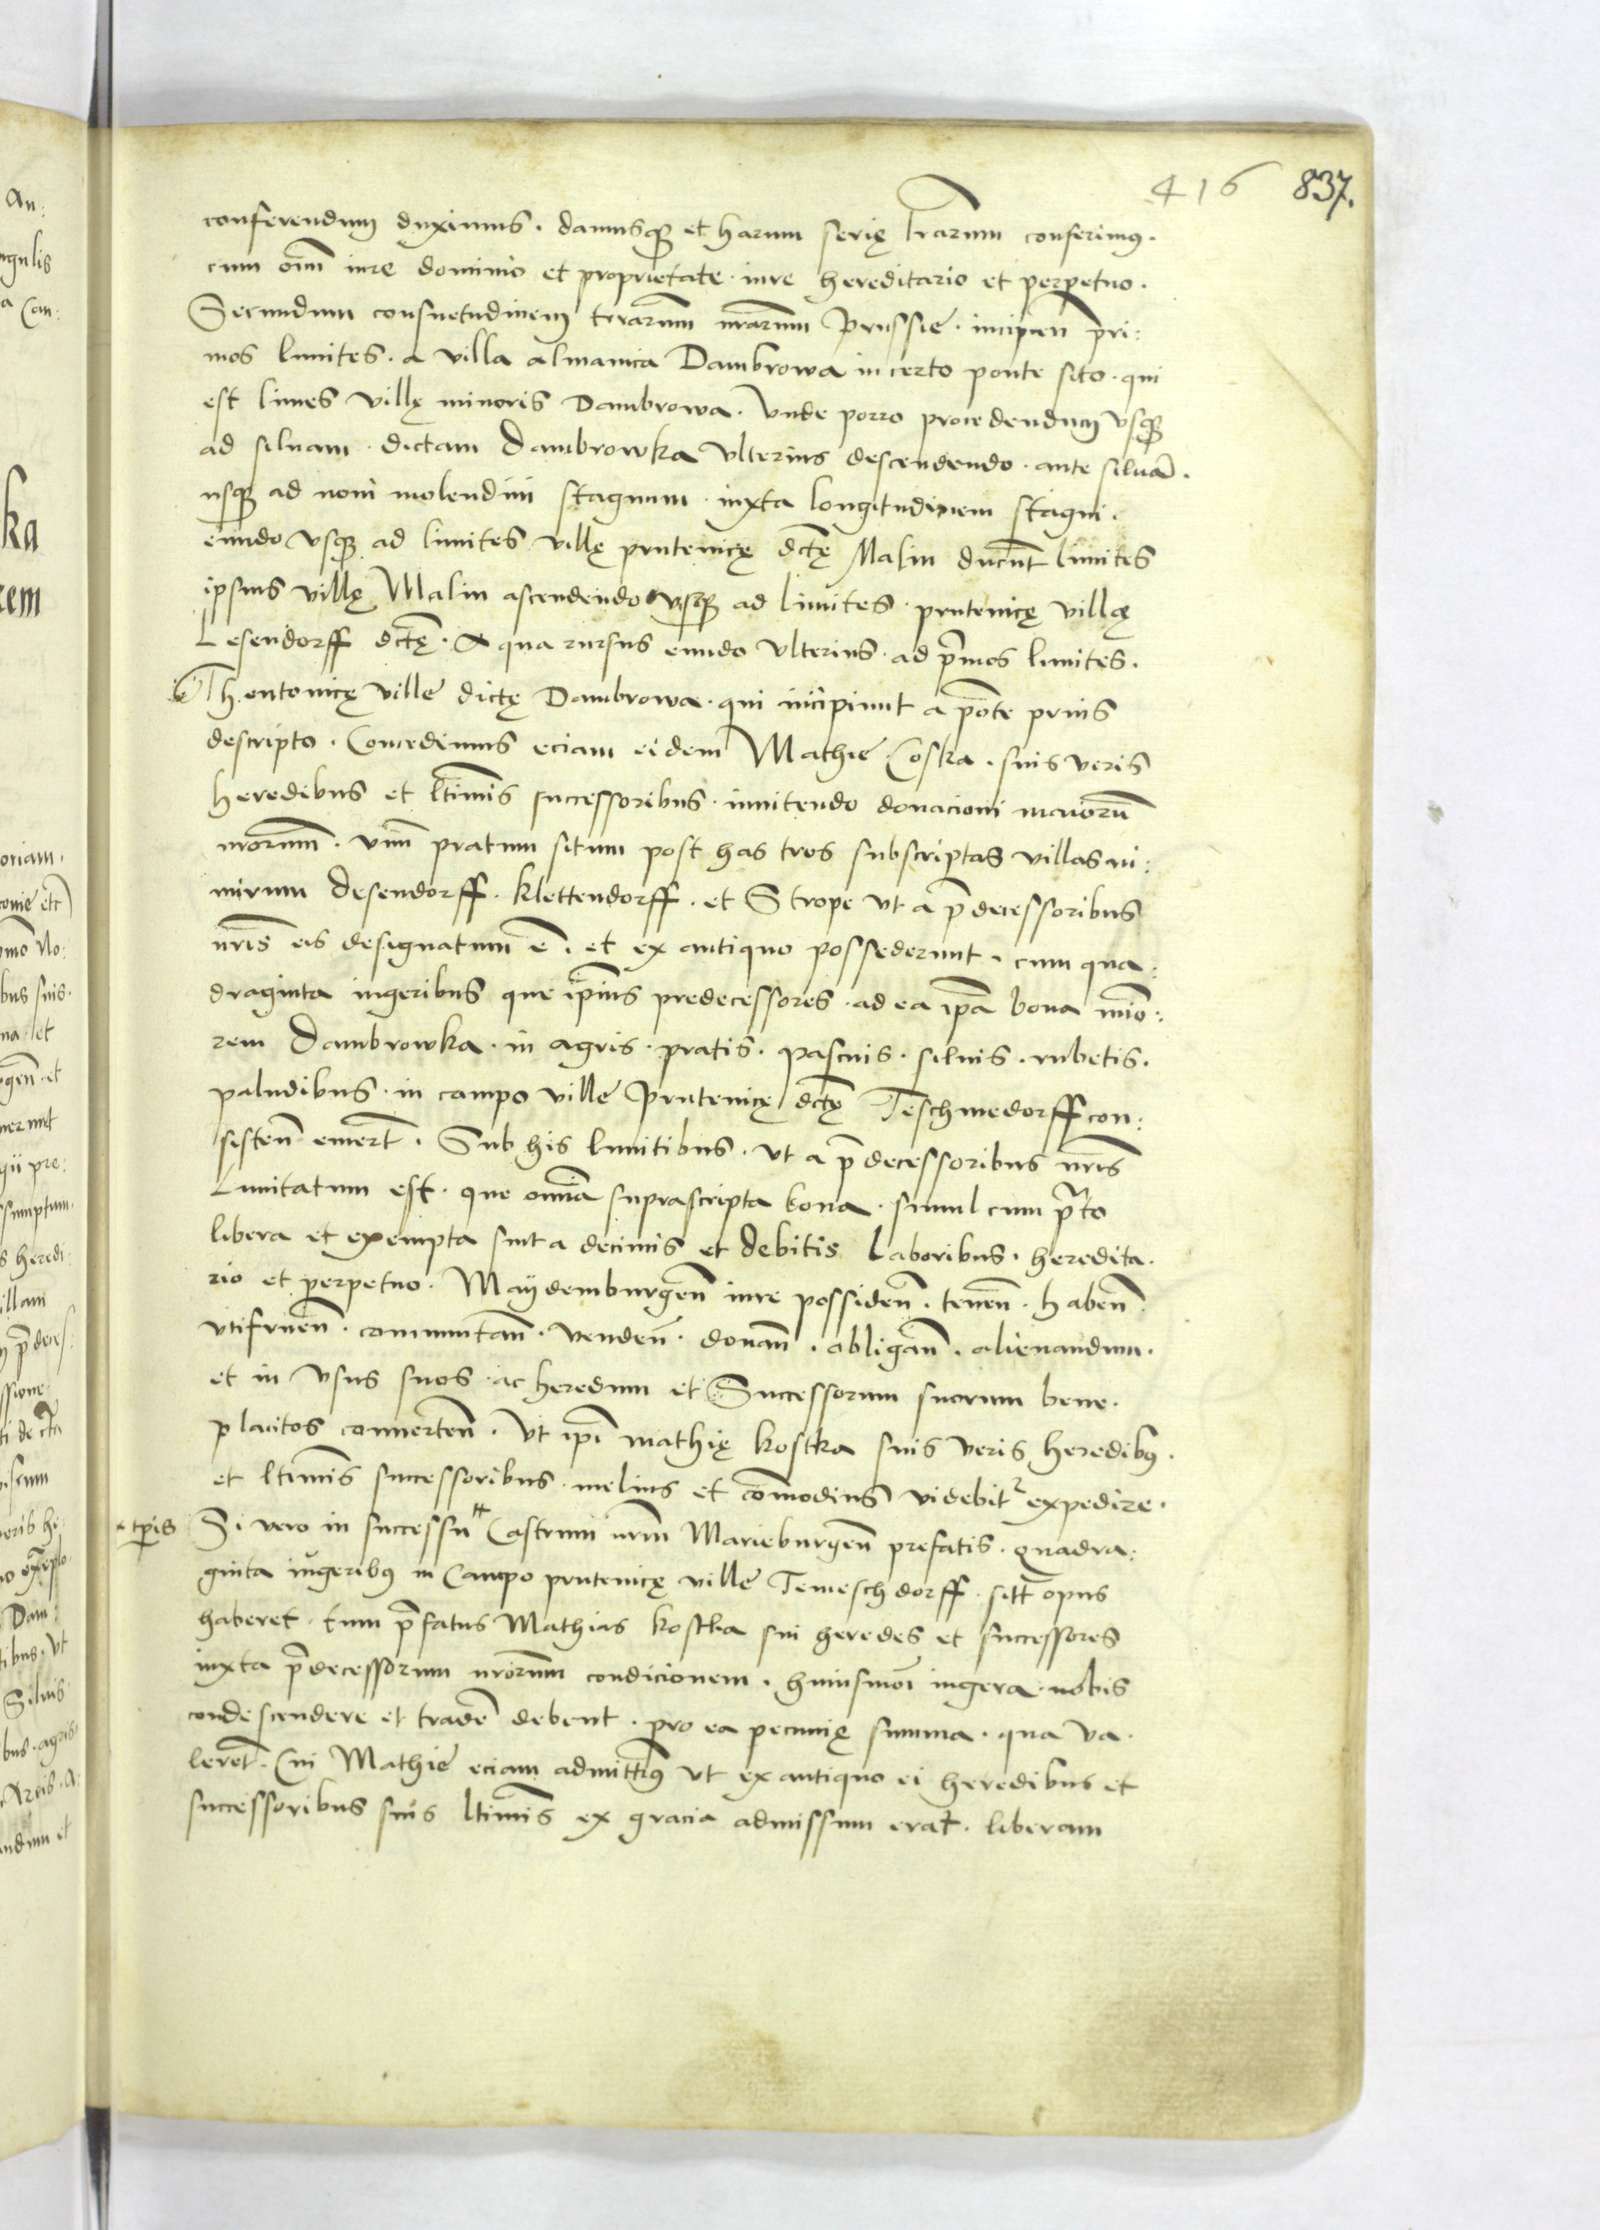 416 837.
conferendum duximus. damusq₃ et harum serię lrarum conferimus.
cum om̄i iure dominio et proprietate. iure hereditario et perpetuo.
Secundum consuetudinem terrarum nrarum Prussie. incipien pri:
mos limites. a villa almanica Dambrowa in certo ponte sito. qui
est limes villę minoris Dambrowa. Vnde porro procedendum vsq₃
ad siluam. dictam Dambrowka vlterius descendendo. ante siluā.
usq₃ ad noui molendini stagnum. iuxta longitudinem stagni.
eundo vsq₃ ad limites villę prutenicę dctę Malin ducunt limites
ipsius villę Malin ascendendo vsq₃ ad limites. prutenicę villę
Lesendorff dctę. A qua rursus eundo vlterius. ad pr̄mos limites.
Thentonicę ville dictę Dambrowa. qui incipiunt a pōte prius
descripto. Concedimus eciam eidem Mathie Coska. suis veris
heredibus et ltīmis successoribus. innitendo donacioni maiorū
nrorum. vnū pratum situm post has tres subscriptas villas ni:
mirum Desendorff. Klettendorff. et Strope vt a p̄decessoribus
nr̄is eis designatum ē. et ex antiquo possederunt. cum qua:
draginta iugeribus que ip̄ius predecessores. ad ea ip̄a bona mino:
rem Dambrowka. in agris. pratis. pascuis. siluis. rubetis.
paludibus. in campo ville Prutenicę dctę Teschmedorff con:
sisten̄ emert̄. Sub his limitibus. vt a p̄decessoribus nr̄is
Limitatum est. que omnia suprascripta bona. simul cum pr̄to
libera et exempta sint a decimis et debitis laboribus. heredita.
rio et perpetuo. Maÿdemburgen̄ iure possiden̄. tenen̄. haben̄.
vtifruen̄. commutan̄. venden̄. donan̄. obligan̄. alienandum.
et in vsus suos. ac heredum et Successorum suorum bene.
placitos conuerten̄. Vt ip̄i mathię kostka suis veris heredibus.
et ltīmis successoribus. melius et cōmodius videbitr expedire.
tp̄is Si vero in successu Castrum nrm̄ Marieburgen̄ prefatis. quadra:
ginta iugeribus in Campo prutenicę ville Temeschdorff. sitt̄ opus
haberet. tum p̄fatus Mathias kostka sui heredes et successores
iuxta p̄decessorum nrorum condicionem. huiusmōi iugera. nobis
condescendere et tradē debent. pro ea pecunię summa. qua va.
leret̄. Cui Mathie eciam admittimus vt ex antiquo ei heredibus et
successoribus suis ltīmis ex gracia admissum erat. liberam